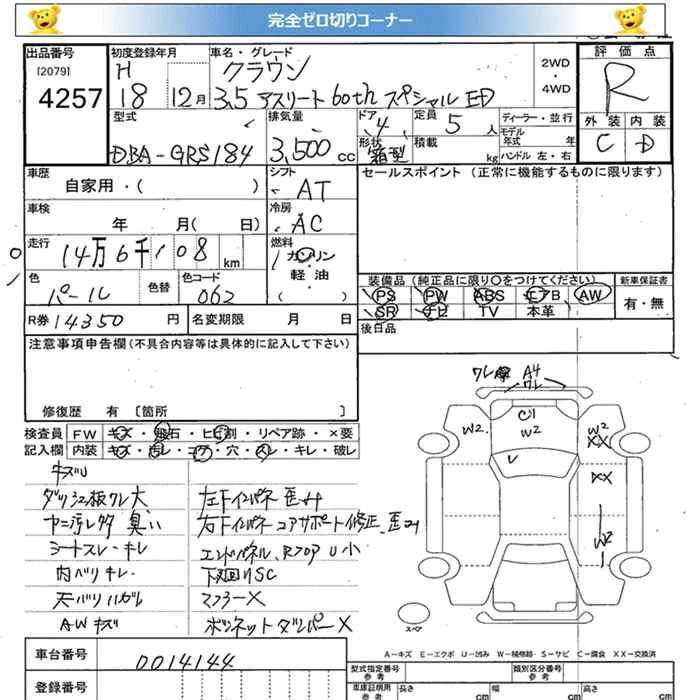 完全ゼロ切りコーナー
出品番号
[2079]
4257
初度登録年月
H
18 12月
車名・グレード
クラウン
3.5 アスリート 60th スペシャル ED
2WD
・
4WD
評価点
R
外装 内装
C D
型式
DBA-GRS184
排気量
3,500 cc
ドア 4
定員 5 人
形状 箱型
積載 kg
ディーラー・並行
モデル年式 年
ハンドル 左・右
車歴
自家用・( )
シフト
AT
セールスポイント (正常に機能するものに限ります)
車検
年 月( 日)
冷房
AC
走行
14万6千108 km
燃料
ガソリン
・
軽・油
( )
色
パール
色替
色コード
062
装備品 (純正品に限り○をつけてください)
PS PW ABS エアB AW
SR ナビ TV 本革
新車保証書
有・無
R券 14350 円
名変期限 月 日
後日品
注意事項申告欄 (不具合内容等は具体的に記入して下さい)
修復歴 有 [箇所 ]
検査員 FW キズ・飛石・ヒビ割・リペア跡・×要
記入欄 内装 キズ・汚レ・コゲ・穴・スレ・キレ・破レ
キズU
ダッシュ板ワレ大
ヤニ汚レ多 臭い
シートスレ・キレ
内バリキレ
天バリハガレ
AWキズ
左下インパネ 歪
右下インパネ コアサポート修正、歪
エンドパネル、Rフロア U小
下廻りSC
マフラーX
ボンネットダンパーX
ワレ A4
ワレ
C1
W2
W2
W2
XX
XX
W2
スペア
A-キズ E-エクボ U-凹み W-補修跡 S-サビ C-腐食 XX-交換済
車台番号
0014144
型式指定番号
参考
類別区分番号
参考
車庫証明用
参考
長さ cm
幅 cm
高さ cm